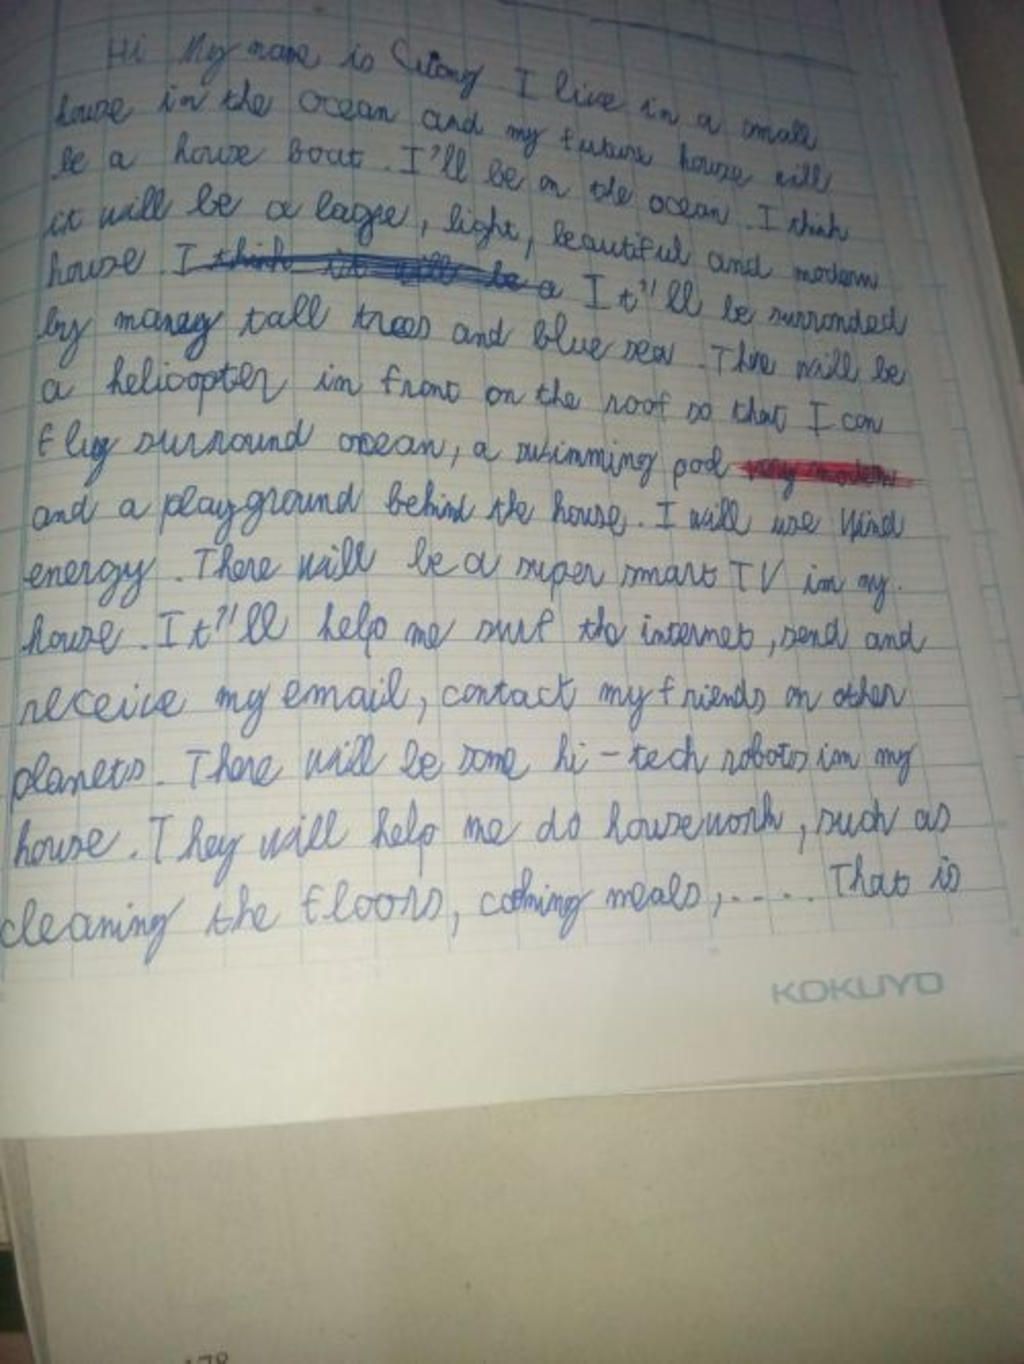 Hi My name is Giang I live in a small
house in the ocean and my future house will
be a house boat. I'll be on the ocean. I think
it will be a lagre, light, beautiful and modern
house. I think it will be a It''ll be surronded
by maney tall trees and blue sea. Thre will be
a helicopter in front on the roof so that I can
flig surround ocean, a swimming pool very modern
and a playground behind the house. I will use wind
energy. There will be a super smart TV in my.
house. It''ll help me surf the internet, send and
receive my email, contact my friends on other
planets. There will be some hi-tech robots in my
house. They will help me do housework, such as
cleaning the floors, cooking meals,..... That is
KOKUYO
178